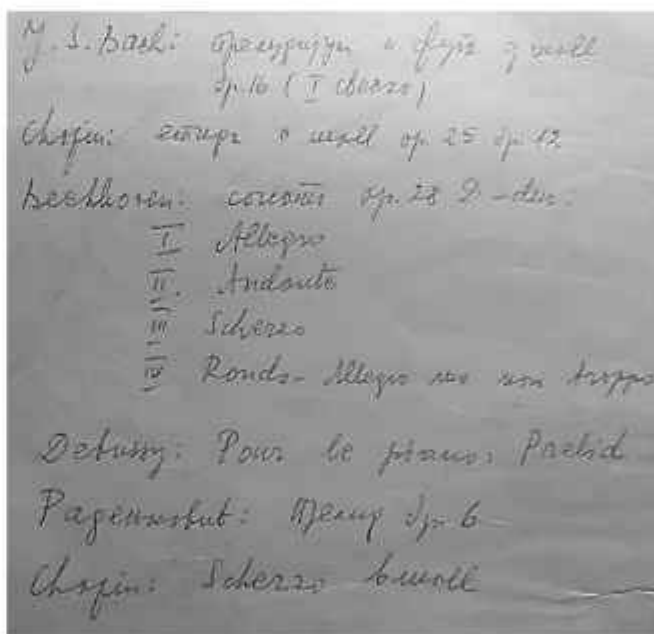 J. S. Bach: прелудијум и фуга g moll
бр. 16 (I свеска)
Chopin: етида c moll op. 25 бр. 12
Beethoven: соната op. 28 D-dur:
I Allegro
II. Andante
III Scherzo
IV Rondo - Allegro ma non troppo
Debussy: Pour le piano: Prelid
бр. 6
Chopin: Scherzo b moll